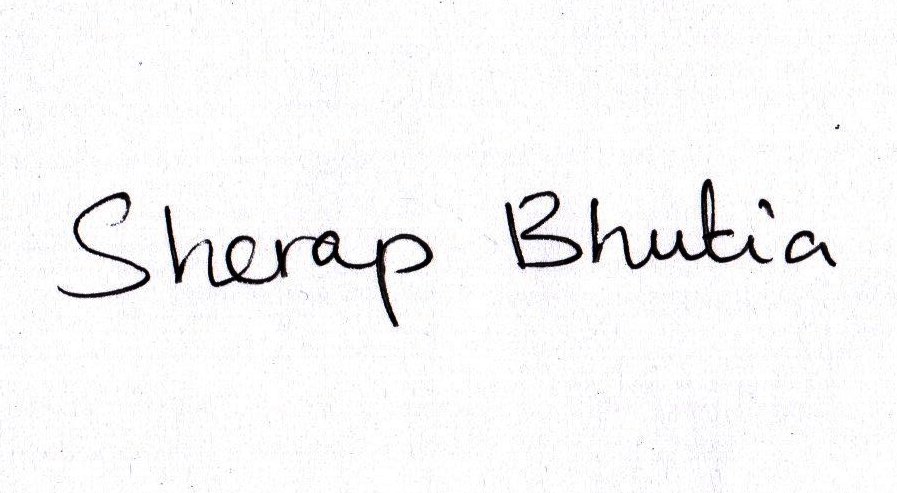 Sherap Bhutia